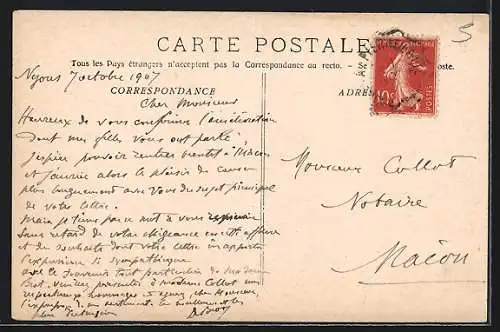 CARTE POSTALE
Tous les Pays étrangers n'acceptent pas la Correspondance au recto. - Se
oste.
CORRESPONDANCE
ADRES
POSTES
10c
5
Nyons 7 octobre 1907
Cher Monsieur
Heureux de vous confirmer l'amélioration
dont mes filles vous ont parlé
J'espère pouvoir rentrer bientôt à Mâcon
et j'aurai alors le plaisir de causer
plus longuement avec vous du sujet principal
de votre lettre.
Mais je tiens par ce mot à vous
sans retard de votre obligeance en cette affaire
et des souhaits dont votre lettre m'apporte
l'expression si sympathique
avec le souvenir tout particulier de Madame
Brot, veuillez présenter à Madame Collot mes
respectueux hommages et agréez, cher Monsieur,
l'expression de mes sentiments les meilleurs et les
plus
Monsieur Collot
Notaire
Mâcon